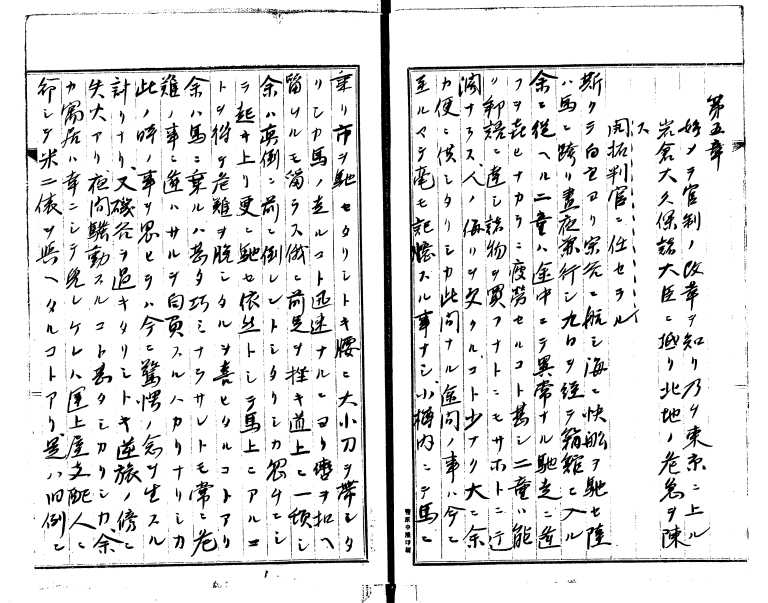 第五章
始メテ官制ノ改革ヲ知リ乃チ東京ニ上ル
岩倉大久保諸大臣ニ抵リ北地ノ危急ヲ陳
ス
開拓判官ニ任セラル
斯クテ白主ヨリ宗谷ニ航シ海ニ快船ヲ馳セ陸
ハ馬ニ跨リ昼夜兼行シ九日ヲ経テ箱館ニ入ル
余ニ従ヘル二童ハ途中ニテ異常ナル馳走ニ逢
フヲ喜ヒナカラニ疲労セルコト甚シ二童ハ能
リ邦語ニ達シ諸物ヲ買フナトニモサホトニ迂
濶ナラス人ノ侮リヲ受クルコト少ナク大ニ余
カ便ニ供シタリシカ此間ナル途間ノ事ハ今ニ
至ルマテ毫モ記憶スル事ナシ小樽内ニテ馬ニ
乗リ市ヲ馳セタリシトキ腰ニ大小刀ヲ帯シタ
リシカ馬ノ走ルコト迅速ナルニヨリ轡ヲ扣ヘ
留ムルモ留ラス俄ニ前足ヲ挫キ道上ニ一頓シ
余ハ真倒ニ前ニ倒レントシタリシカ忽チニシ
テ起キ上リ更ニ馳セ依然トシテ馬上ニアルコ
トヲ得テ危難ヲ脱シタルヲ喜ヒタルコトアリ
余ハ馬ニ乗ルハ甚タ巧ミナラサレトモ常ニ危
難ノ事ニ逢ハサルヲ自負スルハカリナリシカ
此ノ時ノ事ヲ思ヒテハ今ニ驚愕ノ念ヲ生スル
計リナリ又磯谷ヲ過キタリシトキ逆旅ノ傍ニ
失火アリ夜間騒動スルコト甚タシカリシカ余
カ寓居ハ幸ニシテ免レケレハ運上屋支配人ニ
命シテ米二俵ヲ与ヘタルコトアリ是ハ旧例ニ